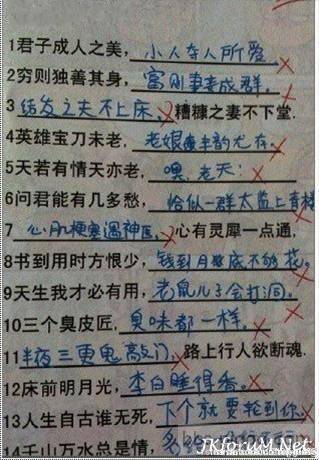 1君子成人之美，小人夺人所爱 ×
2穷则独善其身，富则妻妾成群。×
3结发之夫不上床，× 糟糠之妻不下堂.
4英雄宝刀未老，老娘风韵尤存. ×
5天若有情天亦老，噢，老天: ×
6问君能有几多愁，恰似一群太监上青楼
7心肌梗塞遇神医，× 心有灵犀一点通，
8书到用时方恨少，钱到月底不够花。×
9天生我才必有用，老鼠儿子会打洞。×
10三个臭皮匠，臭味都一样。×
11半夜三更鬼敲门，× 路上行人欲断魂.
12床前明月光，李白睡得香。×
13人生自古谁无死，下个就要轮到你 ×
14千山万水总是情，多给
JKforuM.Net